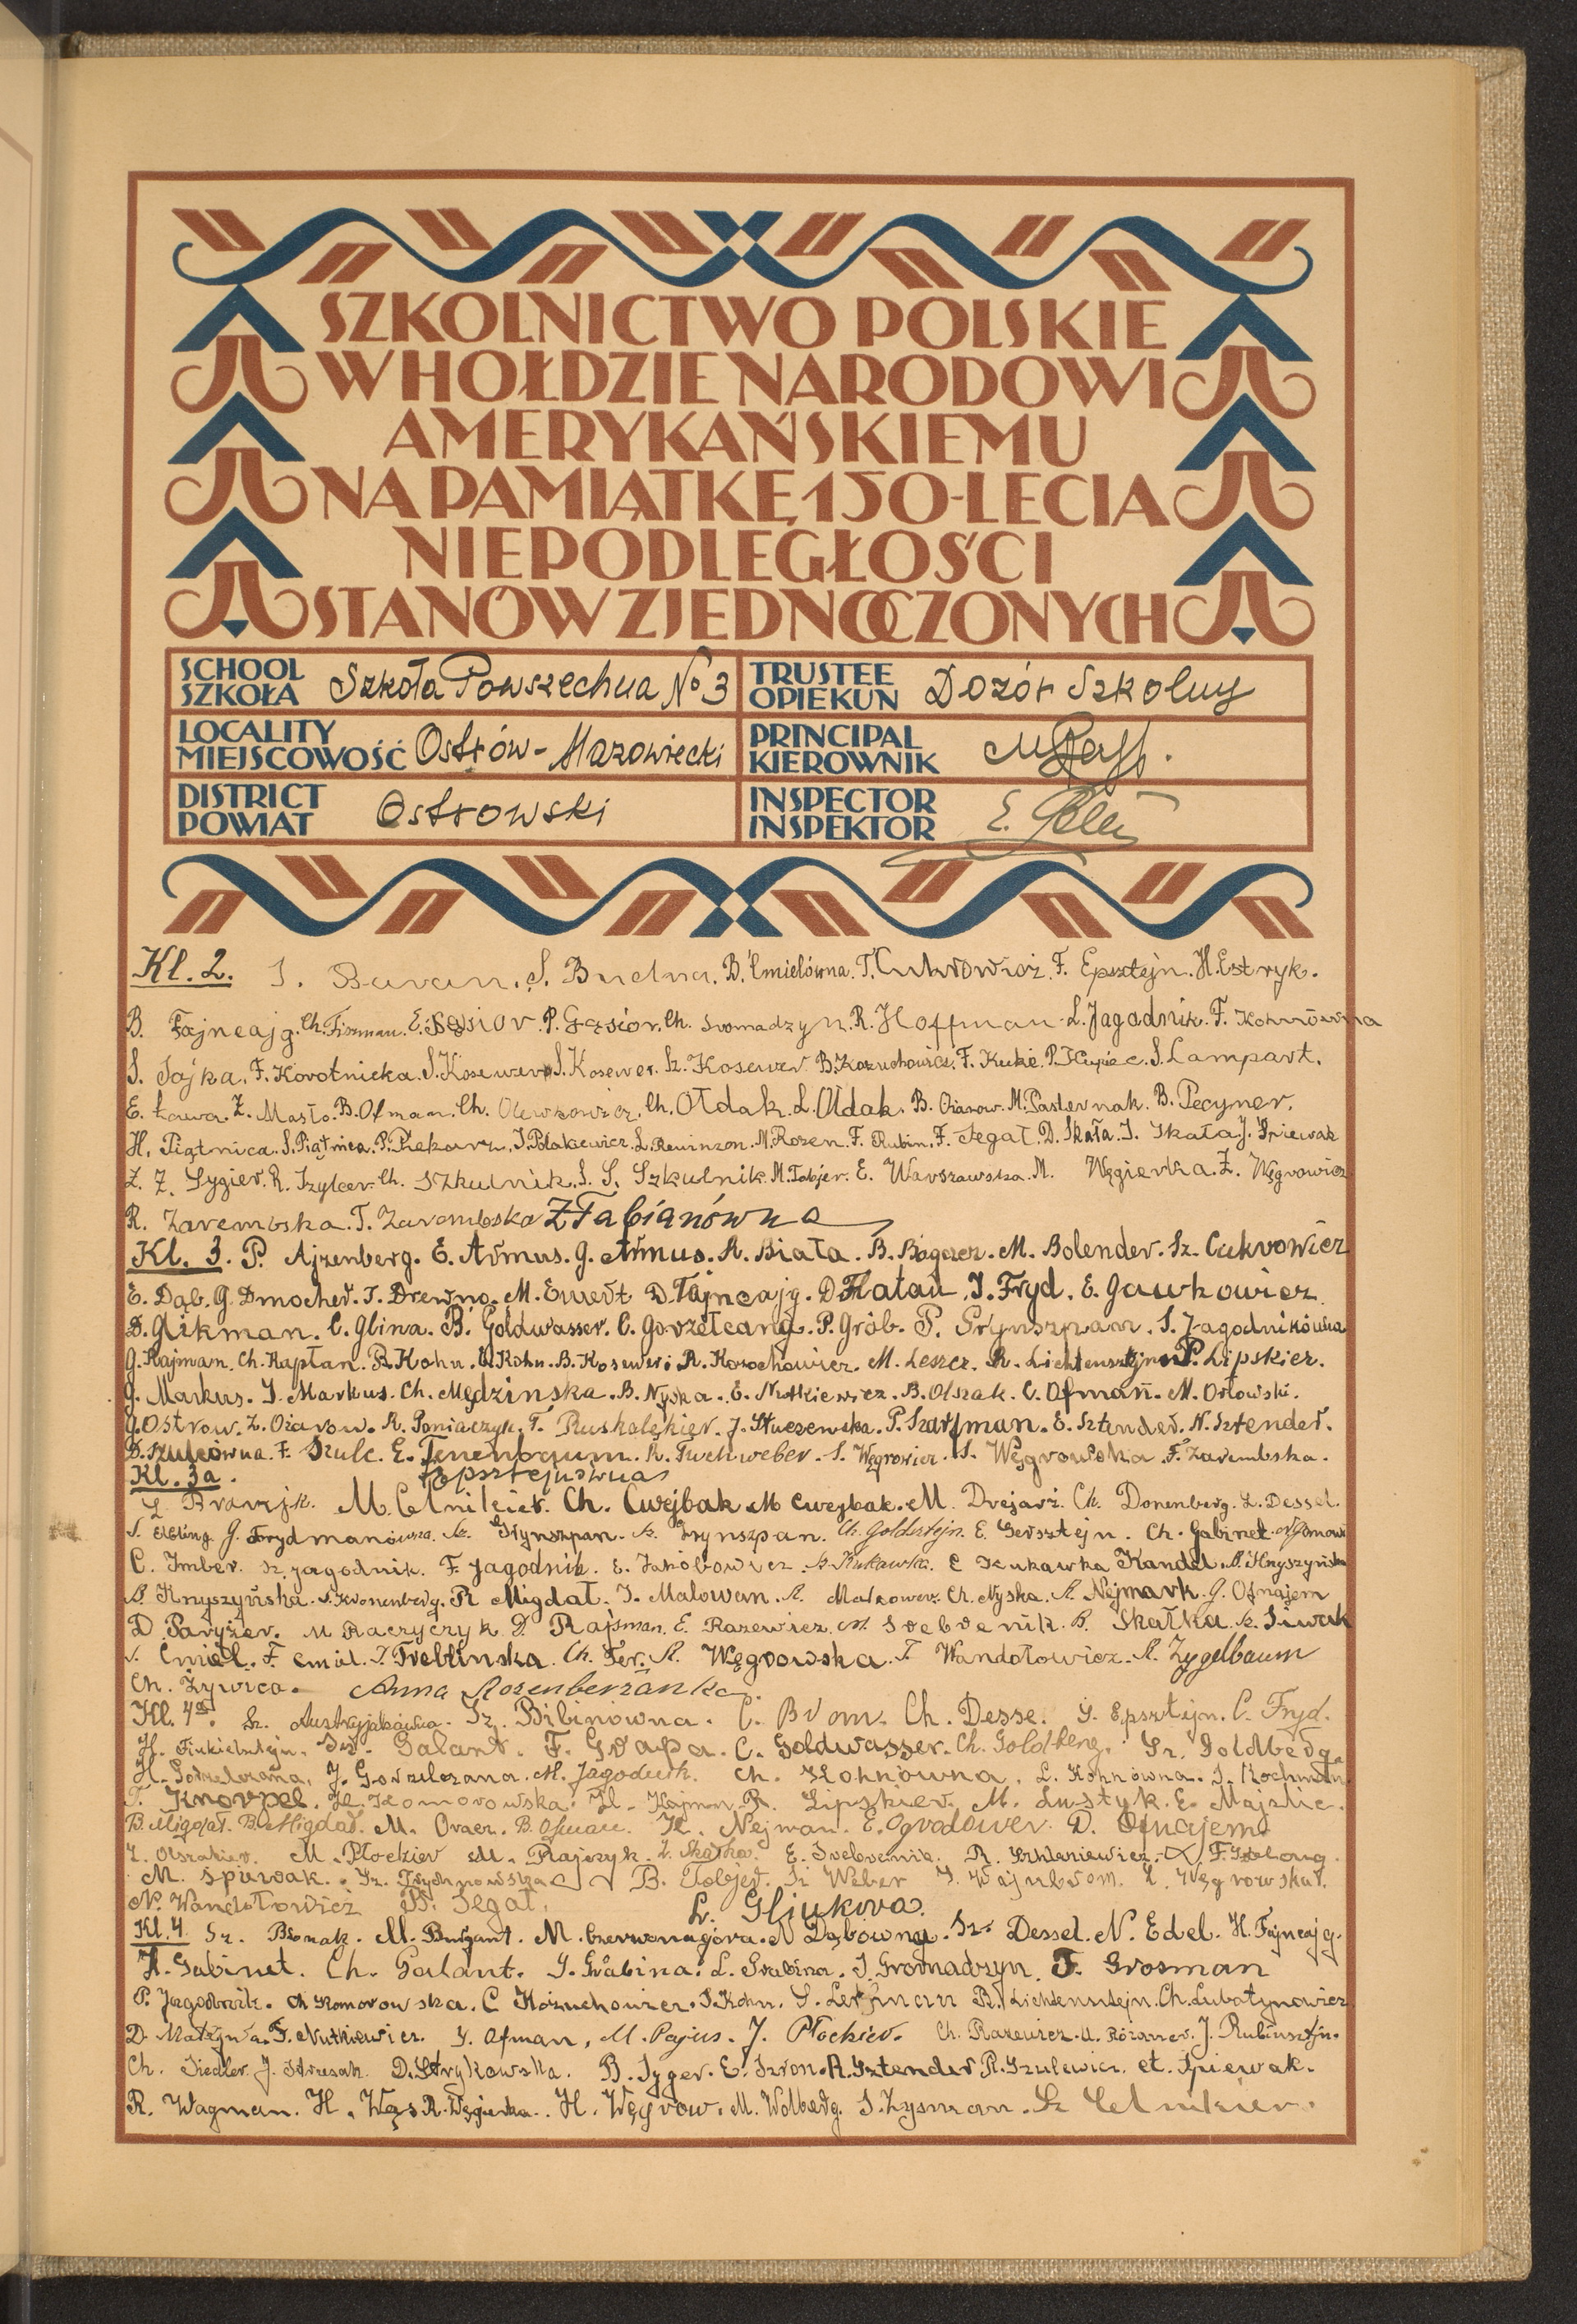 SZKOLNICTWO POLSKIE
W HOŁDZIE NARODOWI
AMERYKAŃSKIEMU
NA PAMIĄTKĘ 150-LECIA
NIEPODLEGŁOŚCI
STANÓW ZJEDNOCZONYCH
SCHOOL
SZKOŁA Szkoła Powszechna No 3
TRUSTEE
OPIEKUN Dozór Szkolny
LOCALITY
MIEJSCOWOŚĆ Ostrów-Mazowiecki
PRINCIPAL
KIEROWNIK
DISTRICT
POWIAT Ostrowski
INSPECTOR
INSPEKTOR E.
Kl. 2. J. Baran. S. Budna. B. Ćmielówna. T. Cukrowicz. F. Epsztejn. H. Estryk.
B. Fajncajg. Ch. Fiszman. E. Gąsior. P. Gąsior. Ch. Gromadzyn. R. Hoffman. L. Jagodnik. F. Kohnówna
S. Sojka. F. Korotnicka. S. Kosewer. S. Kosewer. Sz. Kosewer. B. Kożuchowicz. F. Kukie. P. Kupiec. S. Lampart.
E. Ława. Z. Masło. B. Ofman. Ch. Olewkowicz. Ch. Ołdak. L. Ołdak. B. Ożarow. M. Pasternak. B. Pecyner.
H. Piątnica. S. Piątnica. P. Piekarz. J. Polakiewicz. L. Rewinzon. M. Rozen. F. Rubin. F. Segał. D. Skała. J. Skała. J. Śpiewak
Z. Z. Sygier. R. Szylcer. Ch. Szkulnik. S. S. Szkulnik. M. Tobjer. E. Warszawska. M. Węgierka. Z. Węgrowicz
R. Zarembska. T. Zarembska Z Fabianówna
Kl. 3. P. Ajzenberg. E. Ałmus. G. Ałmus. A. Biała. B. Bogacz. M. Bolender. Sz. Cukrowicz
E. Dąb. G. Dmocher. T. Drewno. M. Enwert D. Fajncajg. D. Flatau. J. Fryd. E. Gawkowicz
D. Glikman. C. Glina. B. Goldwasser. C. Gorzełcang. P. Grób. P. Grynszpan. S. Jagodnikówna
G. Kajman. Ch. Kapłan. R. Kohn. Kohn. B. Kosewer. R. Korochowicz. M. Leszcz. R. Lichtensztejn. P. Lipskier.
G. Markus. J. Markus. Ch. Mędzinska. B. Nyska. E. Nutkiewicz. B. Olszak. C. Ofman. M. Orłowski.
G. Ostrow. Z. Ożarow. R. Poniaczyk. T. Ruskolękier. J. Słuczewska. P. Szarfman. E. Sztender. N. Sztender.
D. Szulcówna. F. Szulc. E. Tenenbaum. R. Tuchweber. S. Węgrowicz. S. Węgrowska F. Zarembska.
Epsztejnówna
Kl. 3a.
M. Celnikier. Ch. Cwejbak M. Cwejbak. M. Drejarż. Ch. Donenberg. L. Dessel.
S. Ebling. G. Frydmanówna. Sz. Grynszpan. Sz. Grynszpan. Ch. Goldsztejn. E. Gersztejn. Ch. Gabinet.
C. Imber. Sz. Jagodnik. F. Jagodnik. E. Jakóbowicz. S. Kukawka. C. Kukawka Kandel. B. Knyszyńska
B. Knyszyńska. S. Kronenberg. R. Migdał. J. Malowan. R. Makower. Ch. Nyska. R. Nejmark. G. Ofnajem
D. Paryżer. M. Raczyczyk. D. Rajzman. E. Razewicz. M. Srebrenik. B. Skałka. Sz. Siwak
S. Ćmiel. F. Ćmiel. Treblinska. Ch. Fer. R. Węgrowska. F. Wandołowicz. R. Zygelbaum
Ch. Żywica. Anna Rozenberżanka.
Kl. 4a. Sz. Austryjakówna. Sz. Bibinówna. C. Brom. Ch. Desse. J. Epsztejn. C. Fryd.
H. Finkielsztejn. Galant. F. Grapa. C. Goldwasser. Ch. Goldberg. Sz. Goldberg.
H. Gorzelczana. J. Gorzelczana. M. Jagodnik. Ch. Kohnówna. L. Kohnówna. J. Kochman.
F. Knorpel. H. Komorowska. H. Kajman. R. Lipskier. M. Lustyk. E. Majzlic.
B. Migdał. B. Migdał. M. Ovaer. B. Ofman. H. Nejman. E. Ogrodower. D. Ofnajem.
Z. Olszakier. M. Płockier M. Rajczyk. Z. Skałka. E. Srebrenik. R. Szklaniewicz. F. Szelong.
M. Śpiewak. Sz. Trychnowska B. Tobjer. Sz. Weber J. Wajnbrom. L. Węgrowska.
N. Wandołowicz B. Segał. L. Gliukova.
Kl. 4 Sz. Bronak. M. Burzant. M. Czerwonagóra. N. Dąbówny. Sz. Dessel. N. Edel. H. Fajncajg.
H. Gabinet. Ch. Galant. J. Grabina. L. Grabina. J. Gromadzyn. F. Grosman
P. Jagodnik. Ch. Komorowska. C. Kożuchowicz. S. Kohn. S. Lerman R. Lichtensztejn. Ch. Lubatynowicz
D. Małżyna. F. Nutkiewicz. J. Ofman. M. Pajus. J. Płockier. Ch. Razewicz. U. Różaner. J. Rubinsztejn.
Ch. Siedler. J. Struzak. D. Strykowska. B. Syger. E. Szron. A. Sztender R. Szulewicz. M. Śpiewak.
R. Wagman. H. Wąs R. Węgierka. H. Węgrow. M. Wolberg. S. Zysman. Sz. Celnikier.